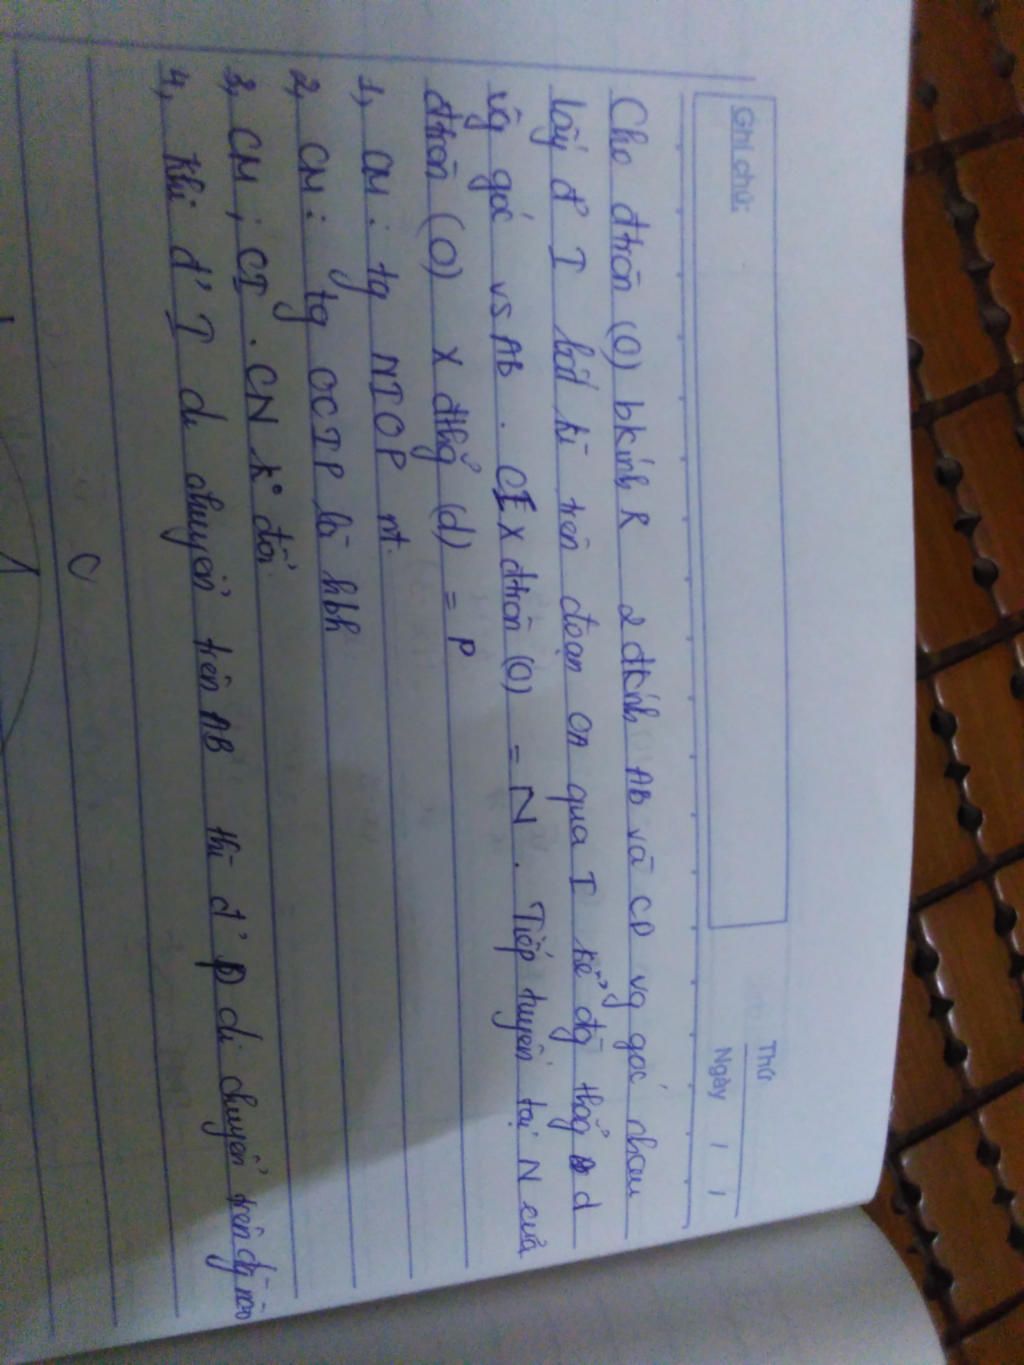 Ghi chú:
Thứ
Ngày / /
Cho đtròn (O) bkính R 2 đkính AB và CD vg góc nhau
lấy đ' I bất kì trên đoạn OA qua I kẻ đg thẳg d
vg góc vs AB. CI X đtròn (O) = N. Tiếp tuyến tại N của
đtròn (O) X đthg (d) = P
1, CM: tg NIOP nt.
2, CM: tg OCIP là hbh
3, CM; CI. CN kº đổi
4, khi đ' I di chuyển trên AB thì đ' P di chuyển trên đg nào
C